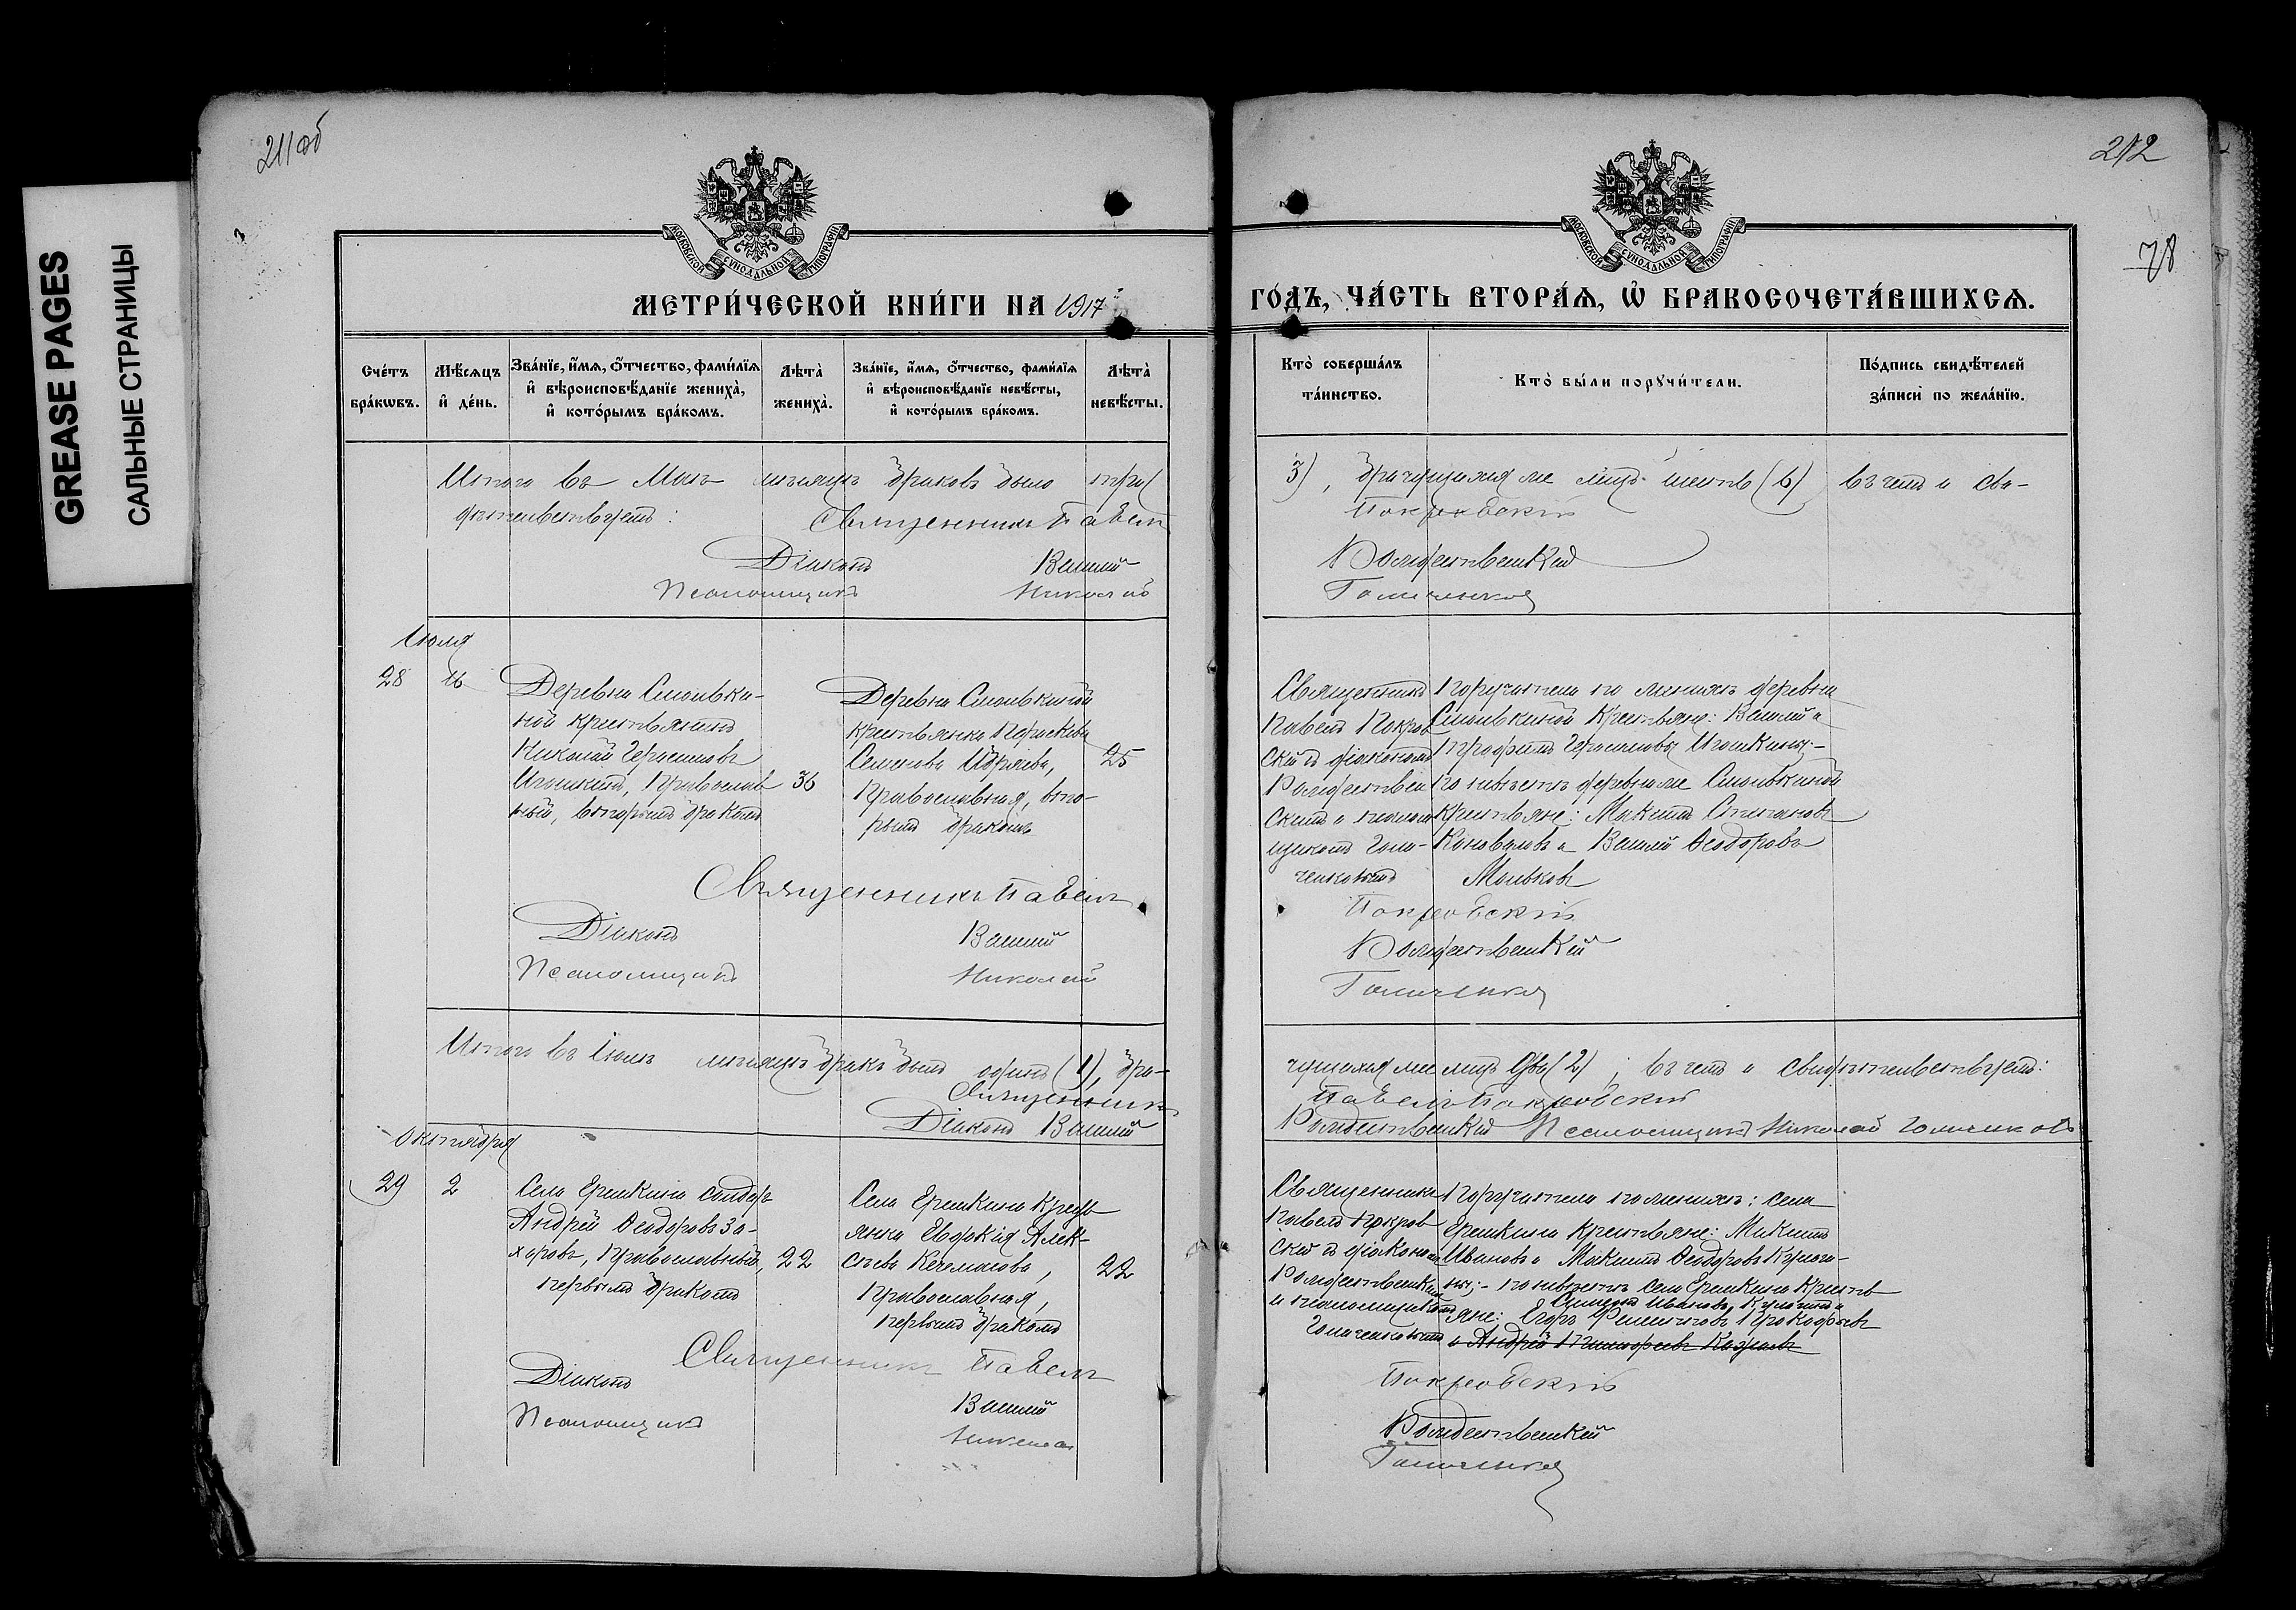 211 об
212
78
GREASE PAGES
САЛЬНЫЕ СТРАНИЦЫ
МОСКОВСКОЙ СѴНОДАЛЬНОЙ ТИПОГРАФІИ
МОСКОВСКОЙ СѴНОДАЛЬНОЙ ТИПОГРАФІИ
МЕТРИ́ЧЕСКОЙ КНИ́ГИ НА 1917
ГО́ДЪ, ЧА́СТЬ ВТОРА́Ѧ, Ѡ҆ БРАКОСОЧЕТА́ВШИХСѦ.
Сче́тъ бра́кѡвъ.
Мѣ́сѧцъ и҆ де́нь.
Зва́нїе, и҆́мѧ, ѻ҆́тчество, фами́лїѧ и҆ вѣроисповѣ́данїе жениха̀, и҆ кото́рымъ бра́комъ.
Лѣта̀ жениха̀.
Зва́нїе, и҆́мѧ, ѻ҆́тчество, фами́лїѧ и҆ вѣроисповѣ́данїе невѣ́сты, и҆ кото́рымъ бра́комъ.
Лѣта̀ невѣ́сты.
Кто̀ соверша́лъ та́инство.
Кто̀ бы́ли порꙋчи́тели.
По́дпись свидѣ́телей за́писи по жела́нїю.
Итого въ Маѣ мѣсяцѣ браковъ было три (3), брачущихся же лицъ шесть (6) въ чемъ и сви-
дѣтельствуемъ: Священникъ Павелъ Покровскій
Діаконъ Василій Рождественскій
Псаломщикъ Николай Голиченков
Іюля
28
16
Деревни Смольки-
ной крестьянинъ
Николай Герасимовъ
Игошкинъ, Православ
ный, вторымъ бракомъ
36
Деревни Смолькиной
крестьянка Параскева
Семенова
Православная, вто-
рымъ бракомъ
25
Священникъ
Павелъ Покров
скій съ діакономъ
Рождествен
скимъ и псалом
щикомъ Голи-
ченковымъ
Поручители по женихѣ деревни
Смолькиной Крестьяне: Василій и
Трофимъ Герасимовы Игошкины;-
по невѣстѣ деревни же Смолькиной
крестьяне: Никита Степановъ
Коноваловъ и Василій Ѳеодоровъ
Священникъ Павелъ Покровскій
Діаконъ Василій Рождественскій
Псаломщикъ Николай Голиченков
Итого въ Іюлѣ мѣсяцѣ бракъ былъ одинъ (1), бра-
чущихся же лицъ два (2); въ чемъ и свидѣтельствуемъ:
Священникъ Павелъ Покровскій
Діаконъ Василій Рождественскій Псаломщикъ Николай Голиченковъ
Октября
29
2
Села Ерыкина солдатъ
Андрей Ѳеодоровъ За-
харовъ, Православный,
первымъ бракомъ
22
Села Ерыкина Кресть
янка Евдокія Алек-
сѣева
Православная,
первымъ бракомъ
22
Священникъ
Павелъ Покров
скій съ діакономъ
Рождественскимъ
и псаломщикомъ
Голиченковымъ
Поручители по женихѣ: села
Ерыкина Крестьяне: Никита
Ивановъ и Никита Ѳеодоровъ
по невѣстѣ села Ерыкина Кресть
яне: Егоръ Прокофьевъ
и Андрей Никифоровъ
Священникъ Павелъ Покровскій
Діаконъ Василій Рождественскій
Псаломщикъ Николай Голиченков